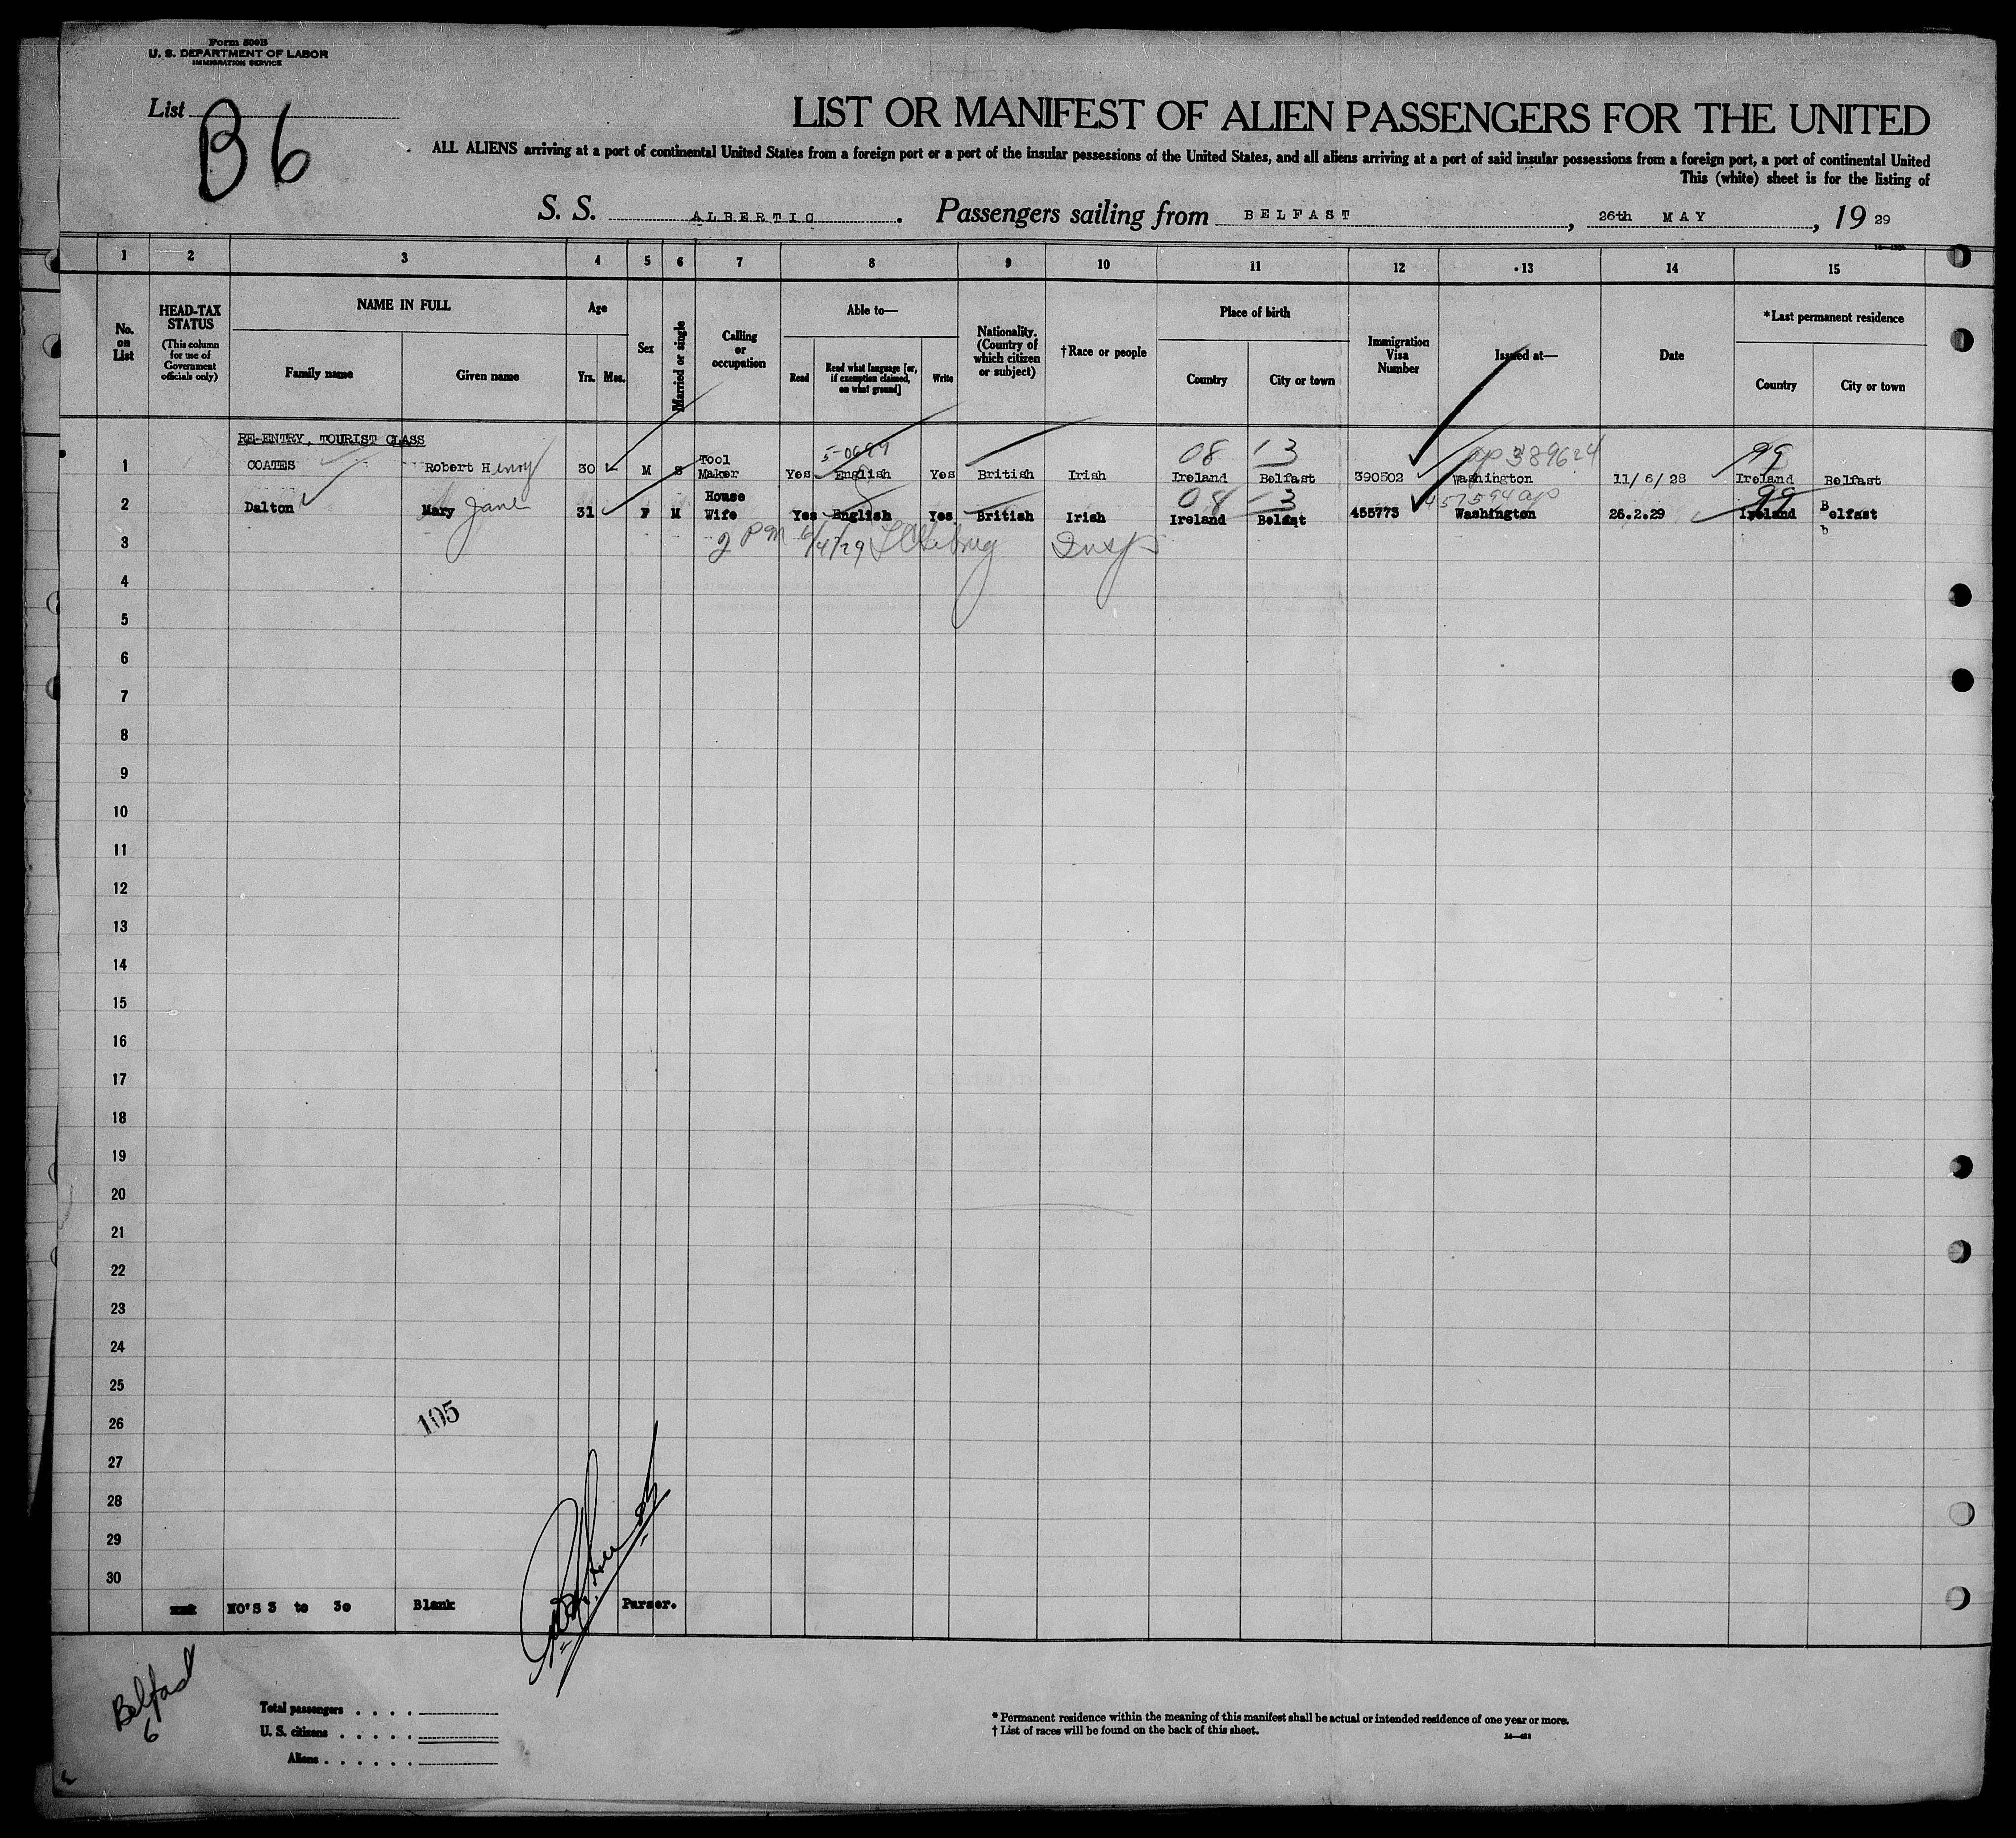 Form 500B
U. S. DEPARTMENT OF LABOR
IMMIGRATION SERVICE
List B6
LIST OR MANIFEST OF ALIEN PASSENGERS FOR THE UNITED
ALL ALIENS arriving at a port of continental United States from a foreign port or a port of the insular possessions of the United States, and all aliens arriving at a port of said insular possessions from a foreign port, a port of continental United
This (white) sheet is for the listing of
S. S. ALBERTIC. Passengers sailing from BELFAST, 26th MAY, 19 29
1 2 3 4 5 6 7 8 9 10 11 12 13 14 15
No. on List
HEAD-TAX STATUS
(This column for use of Government officials only)
NAME IN FULL
Family name Given name
Age
Yrs. Mos.
Sex
Married or single
Calling or occupation
Able to—
Read
Read what language [or, if exemption claimed, on what ground]
Write
Nationality. (Country of which citizen or subject)
†Race or people
Place of birth
Country City or town
Immigration Visa Number
Issued at—
Date
*Last permanent residence
Country City or town
RE-ENTRY, TOURIST CLASS
5-0699 08 13 ap 389624 99
1 COATES Robert Henry 30 M S Tool Maker Yes English Yes British Irish Ireland Belfast 390502 Washington 11/6/28 Ireland Belfast
08 3 99
2 Dalton Mary Jane 31 F M House Wife Yes English Yes British Irish Ireland Belfast 455773 Washington 26.2.29 Ireland Belfast
3 2 PM 6/4/29 Insp
4
5
6
7
8
9
10
11
12
13
14
15
16
17
18
19
20
21
22
23
24
25
26 105
27
28
29
30
NO'S 3 to 30 Blank Purser.
Belfast
6
Total passengers . . . .
U. S. citizens . . . . .
Aliens . . . . . .
* Permanent residence within the meaning of this manifest shall be actual or intended residence of one year or more.
† List of races will be found on the back of this sheet.